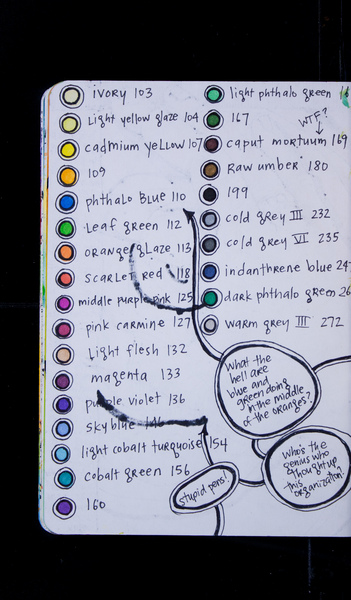 ivory 103
Light yellow glaze 104
cadmium yellow 107
109
phthalo Blue 110
Leaf green 112
orange glaze 113
scarlet red 118
middle purple pink 125
pink carmine 127
Light flesh 132
magenta 133
purple violet 136
sky blue 146
light cobalt turquoise 154
cobalt green 156
160
light phthalo green
167
WTF?
caput mortuum 169
Raw umber 180
199
cold grey III 232
cold grey VI 235
indanthrene blue
dark phthalo green
warm grey III 272
What the
hell are
blue and
green doing
in the middle
of the oranges?
Who's the
genius who
thought up
this
organization?
stupid pens!